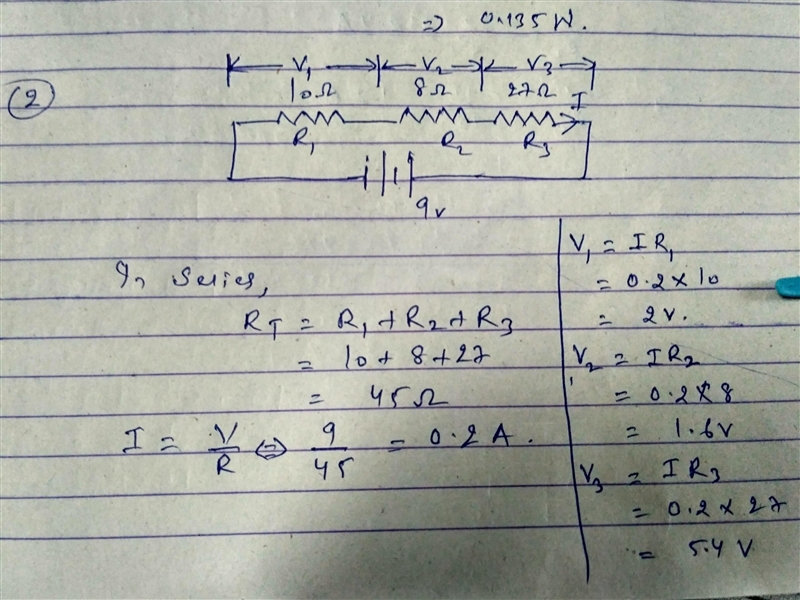 ⇒ 0.135W.
(2)
V₁ V₂ V₃
10Ω 8Ω 27Ω I
R₁ R₂ R₃
9v
In Series,
R_T = R₁ + R₂ + R₃
= 10 + 8 + 27
= 45Ω
I = V/R ⇔ 9/45 = 0.2 A.
V₁ = IR₁
= 0.2 × 10
= 2v.
V₂ = IR₂
= 0.2 × 8
= 1.6v
V₃ = IR₃
= 0.2 × 27
= 5.4 V